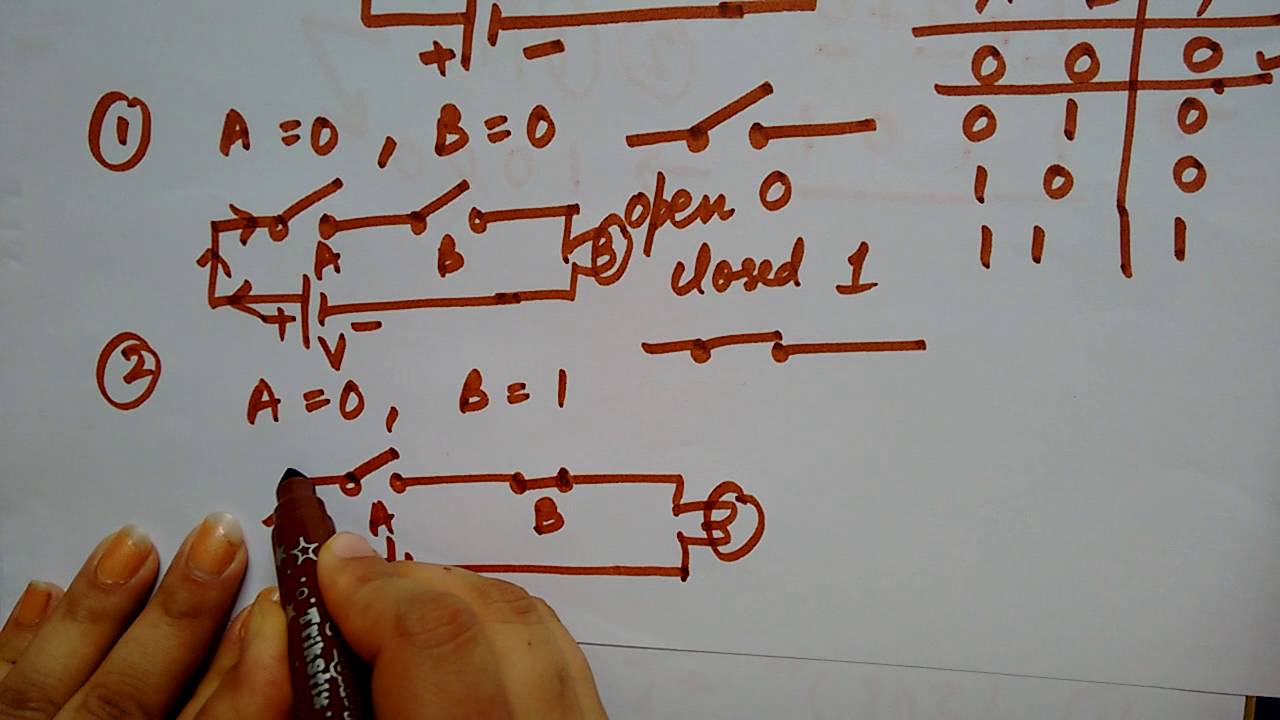 + -
0 0 0
0 1 0
1 0 0
1 1 1
① A = 0 , B = 0
open 0
closed 1
A B
+ V -
② A = 0 , B = 1
A B
Trikstix